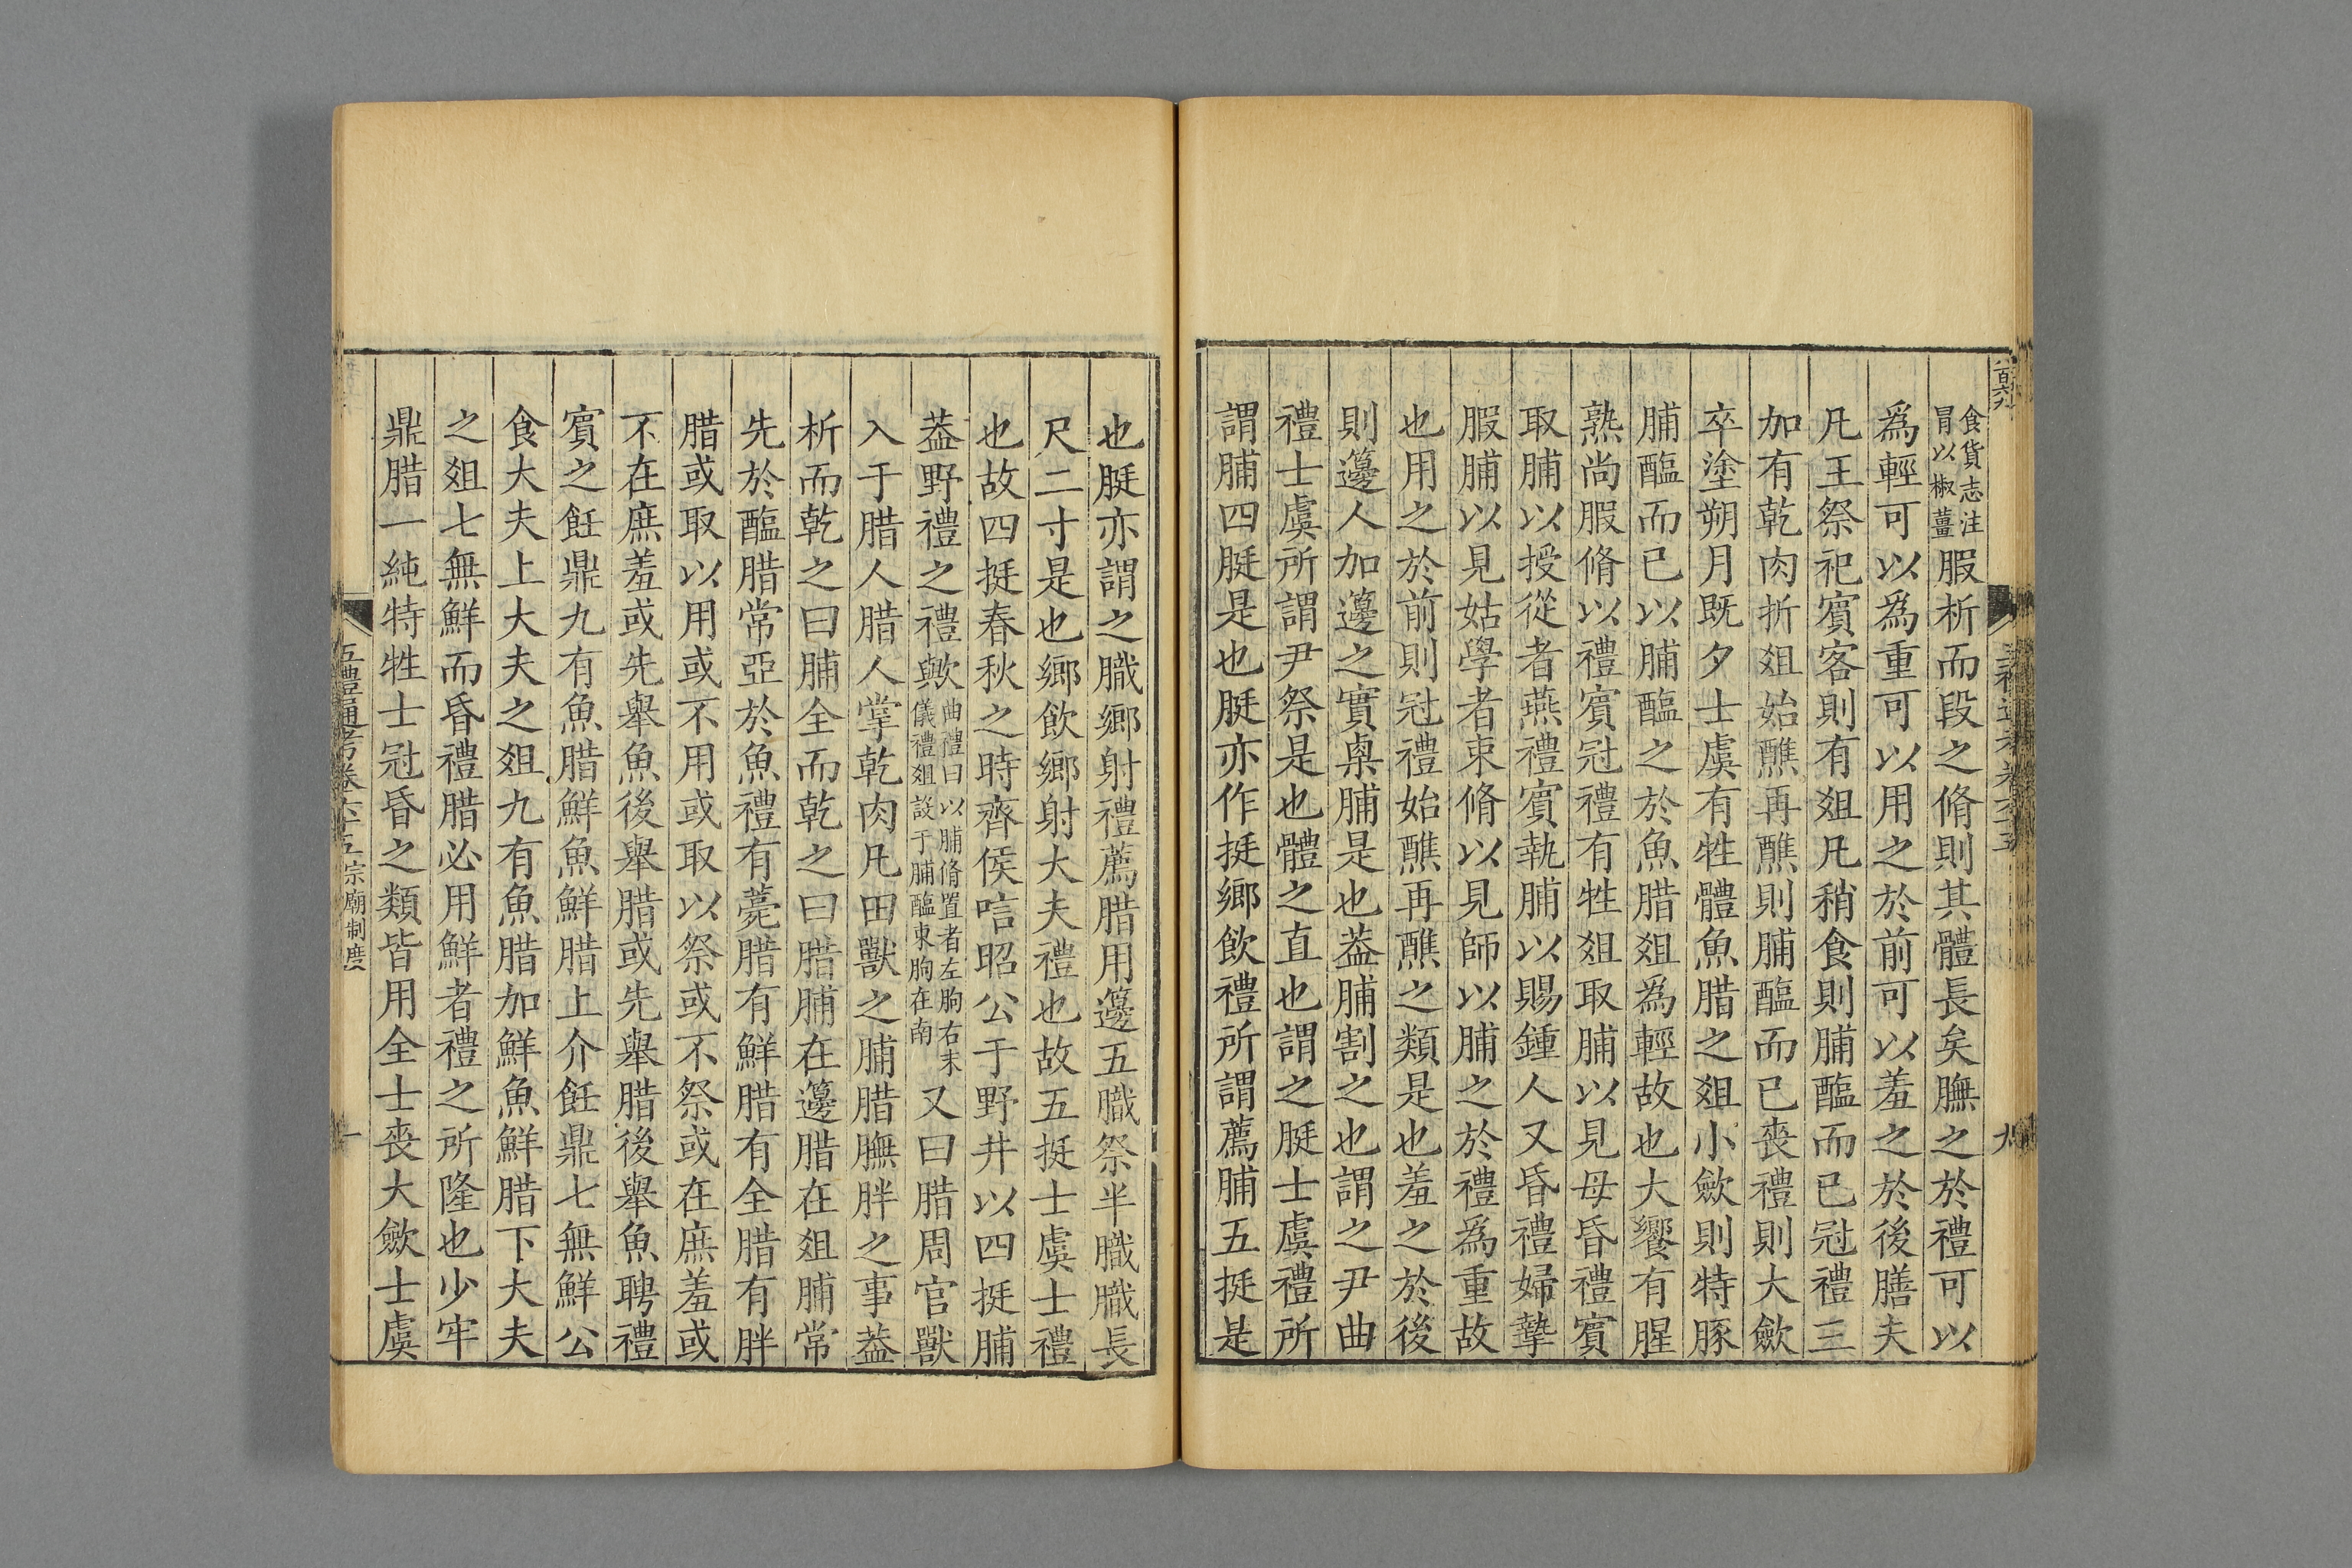 食貨志注
冒以椒薑
腶析而段之脩則其體長矣膴之於禮可以
爲輕可以爲重可以用之於前可以羞之於後膳夫
凡王祭祀賓客則有俎凡稍食則脯醢而已冠禮三
加有乾肉折俎始醮再醮則脯醢而已喪禮則大斂
卒塗朔月既夕士虞有牲體魚腊之俎小斂則特豚
脯醢而已以脯醢之於魚腊俎爲輕故也大饗有腥
熟尚腶脩以禮賓冠禮有牲俎取脯以見母昏禮賓
取脯以授從者燕禮賓執脯以賜鍾人又昏禮婦摯
腶脯以見姑學者束脩以見師以脯之於禮爲重故
也用之於前則冠禮始醮再醮之類是也羞之於後
則籩人加籩之實㮚脯是也葢脯割之也謂之尹曲
禮士虞所謂尹祭是也體之直也謂之脡士虞禮所
謂脯四脡是也脡亦作挺鄉飲禮所謂薦脯五挺是
也脡亦謂之膱鄉射禮薦腊用籩五膱祭半膱膱長
尺二寸是也鄉飲鄉射大夫禮也故五挺士虞士禮
也故四挺春秋之時齊侯唁昭公于野井以四挺脯
葢野禮之禮歟
曲禮曰以脯脩置者左朐右末
儀禮俎設于脯醢東朐在南
又曰腊周官獸
入于腊人腊人掌乾肉凡田獸之脯腊膴胖之事葢
析而乾之曰脯全而乾之曰腊脯在籩腊在俎脯常
先於醢腊常亞於魚禮有薧腊有鮮腊有全腊有胖
腊或取以用或不用或取以祭或不祭或在庶羞或
不在庶羞或先舉魚後舉腊或先舉腊後舉魚聘禮
賓之飪鼎九有魚腊鮮魚鮮腊上介飪鼎七無鮮公
食大夫上大夫之俎九有魚腊加鮮魚鮮腊下大夫
之俎七無鮮而昏禮腊必用鮮者禮之所隆也少牢
鼎腊一純特牲士冠昏之類皆用全士喪大斂士虞
五禮通考卷六十五宗廟制度